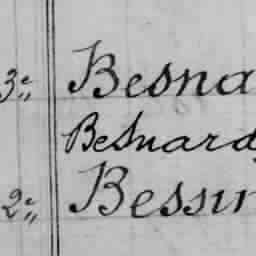 3e" Besna
Besnard
2e" Bessin